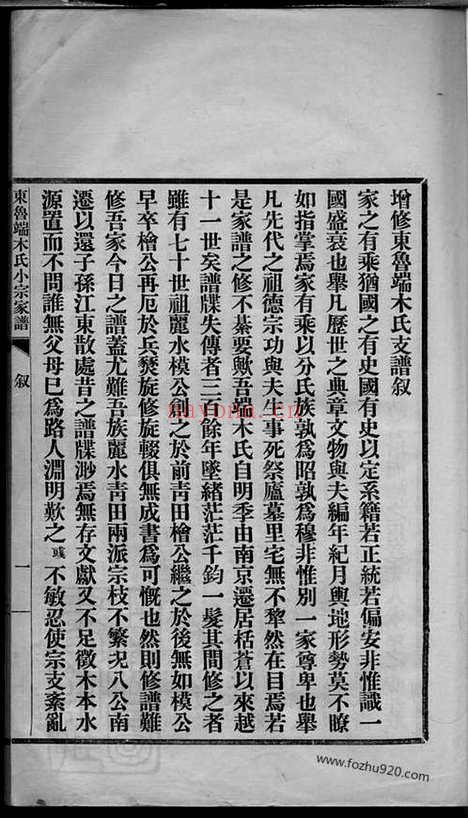 增修東魯端木氏支譜叙
家之有乘猶國之有史國有史以定系籍若正統若偏安非惟識一
國盛衰也舉凡歷世之典章文物與夫編年紀月輿地形勢莫不瞭
如指掌焉家有乘以分氏族孰爲昭孰爲穆非惟別一家尊卑也舉
凡先代之祖德宗功與夫生事死祭廬墓里宅無不犂然在目焉若
是家譜之修不綦要歟吾端木氏自明季由南京遷居栝蒼以來越
十一世矣譜牒失傳者三百餘年墜緒茫茫千鈞一髮其間修之者
雖有七十世祖麗水模公創之於前青田檜公繼之於後無如模公
早卒檜公再厄於兵燹旋修旋輟俱無成書爲可慨也然則修譜難
修吾家今日之譜蓋尤難吾族麗水青田兩派宗枝不繁況八公南
遷以還子孫江東散處昔之譜牒渺焉無存文獻又不足徵木本水
源置而不問誰無父母已爲路人淵明歎之彧不敏忍使宗支紊亂
東魯端木氏小宗家譜
叙
一
nayona.cn
www.fozhu920.com